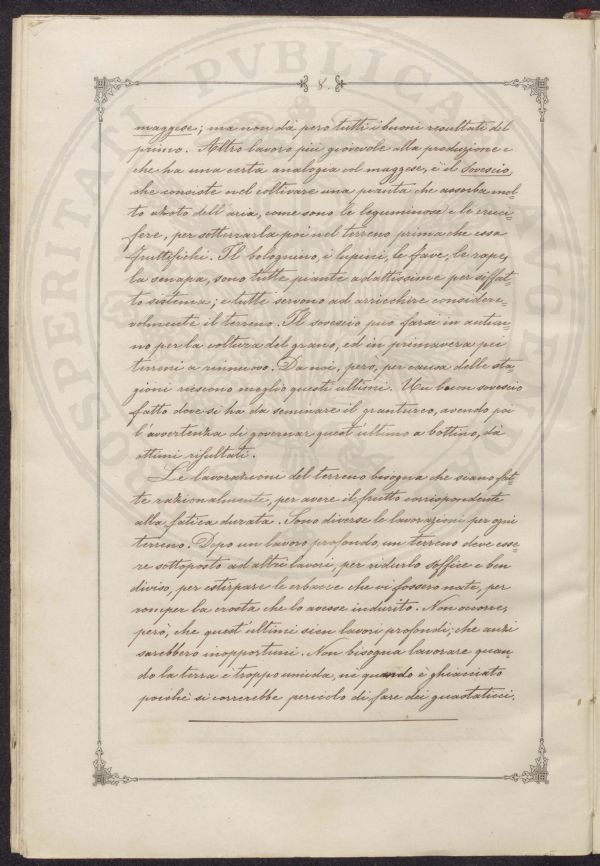 8.
maggese; ma non dà però tutti i buoni risultati del
primo. Altro lavoro più giovevole alla produzione e
che ha una certa analogia col maggese, è il sovescio,
che consiste nel coltivare una pianta che assorba mol-
to azoto dell'aria, come sono le leguminose e le cruci-
fere, per sotterrarla poi nel terreno prima che essa
fruttifichi. Il bolognino, i lupini, le fave, le rape,
la senapa, sono tutte piante adattissime per siffat-
to sistema; e tutte servono ad arricchire considere-
volmente il terreno. Il sovescio può farsi in autun-
no per la coltura del grano, ed in primavera pei
terreni a rinnuovo. Da noi, però, per causa delle sta-
gioni riescono meglio questi ultimi. Un buon sovescio
fatto dove si ha da seminare il granturco, avendo poi
l'avvertenza di governar quest'ultimo a bottino, dà
ottimi risultati.
Le lavorazioni del terreno bisogna che siano fat-
te razionalmente, per avere il frutto corrispondente
alla fatica durata. Sono diverse le lavorazioni per ogni
terreno. Dopo un lavoro profondo, un terreno deve esse-
re sottoposto ad altri lavori, per ridurlo soffice e ben
diviso, per estirpare le erbacce che vi fossero nate, per
romper la crosta che lo avesse indurito. Non occorre,
però, che quest'ultimi sien lavori profondi; che anzi
sarebbero inopportuni. Non bisogna lavorare quan-
do la terra è troppo umida, nè quando è ghiacciato
poichè si correrebbe pericolo di fare dei guastaticci.
PROSPERITATI PVBLICAE AVGENDAE